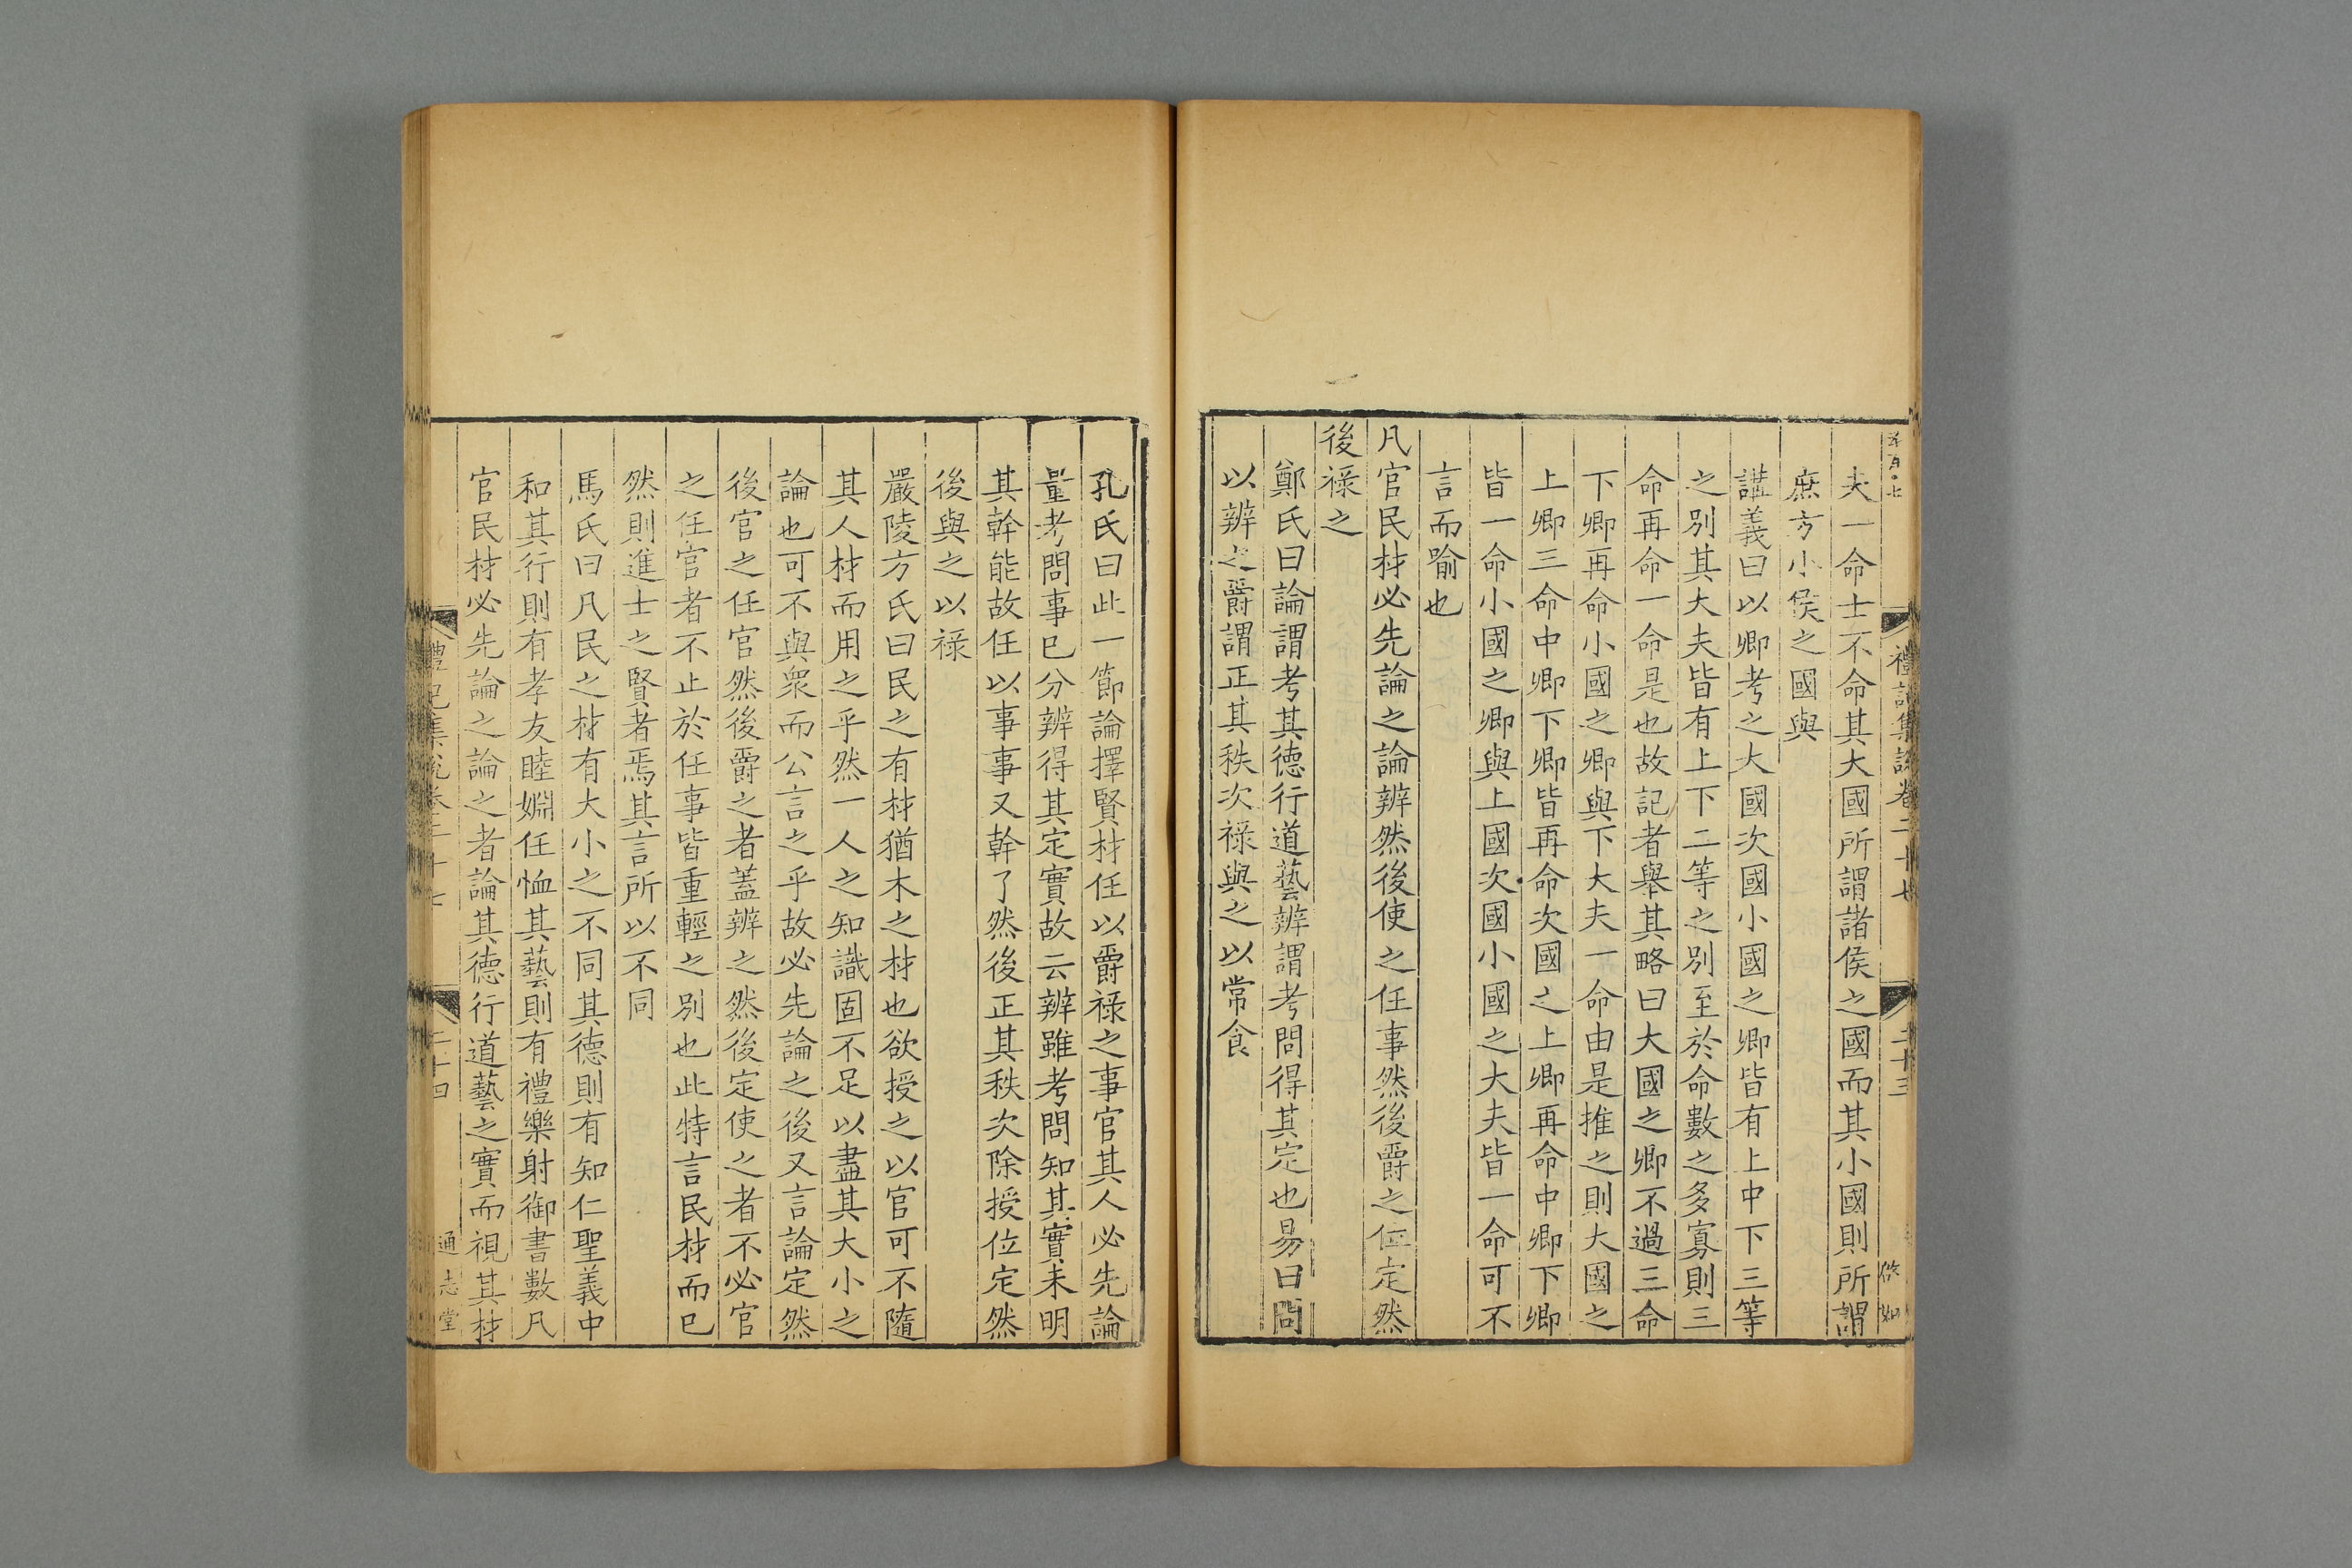 禮記集說卷二十七
二十三
夫一命士不命其大國所謂諸侯之國而其小國則所謂
庶方小侯之國與
講義曰以卿考之大國次國小國之卿皆有上中下三等
之別其大夫皆有上下二等之別至於命數之多寡則三
命再命一命是也故記者舉其略曰大國之卿不過三命
下卿再命小國之卿與下大夫一命由是推之則大國之
上卿三命中卿下卿皆再命次國之上卿再命中卿下卿
皆一命小國之卿與上國次國小國之大夫皆一命可不
言而喻也
凡官民材必先論之論辨然後使之任事然後爵之位定然
後祿之
鄭氏曰論謂考其德行道藝辨謂考問得其定也易曰問
以辨之爵謂正其秩次祿與之以常食
孔氏曰此一節論擇賢材任以爵祿之事官其人必先論
量考問事已分辨得其定實故云辨雖考問知其實未明
其幹能故任以事事又幹了然後正其秩次除授位定然
後與之以祿
嚴陵方氏曰民之有材猶木之材也欲授之以官可不隨
其人材而用之乎然一人之知識固不足以盡其大小之
論也可不與衆而公言之乎故必先論之後又言論定然
後官之任官然後爵之者蓋辨之然後定使之者不必官
之任官者不止於任事皆重輕之別也此特言民材而已
然則進士之賢者焉其言所以不同
馬氏曰凡民之材有大小之不同其德則有知仁聖義中
和其行則有孝友睦婣任恤其藝則有禮樂射御書數凡
官民材必先論之論之者論其德行道藝之實而視其材
禮記集說卷二十七
二十四
通志堂